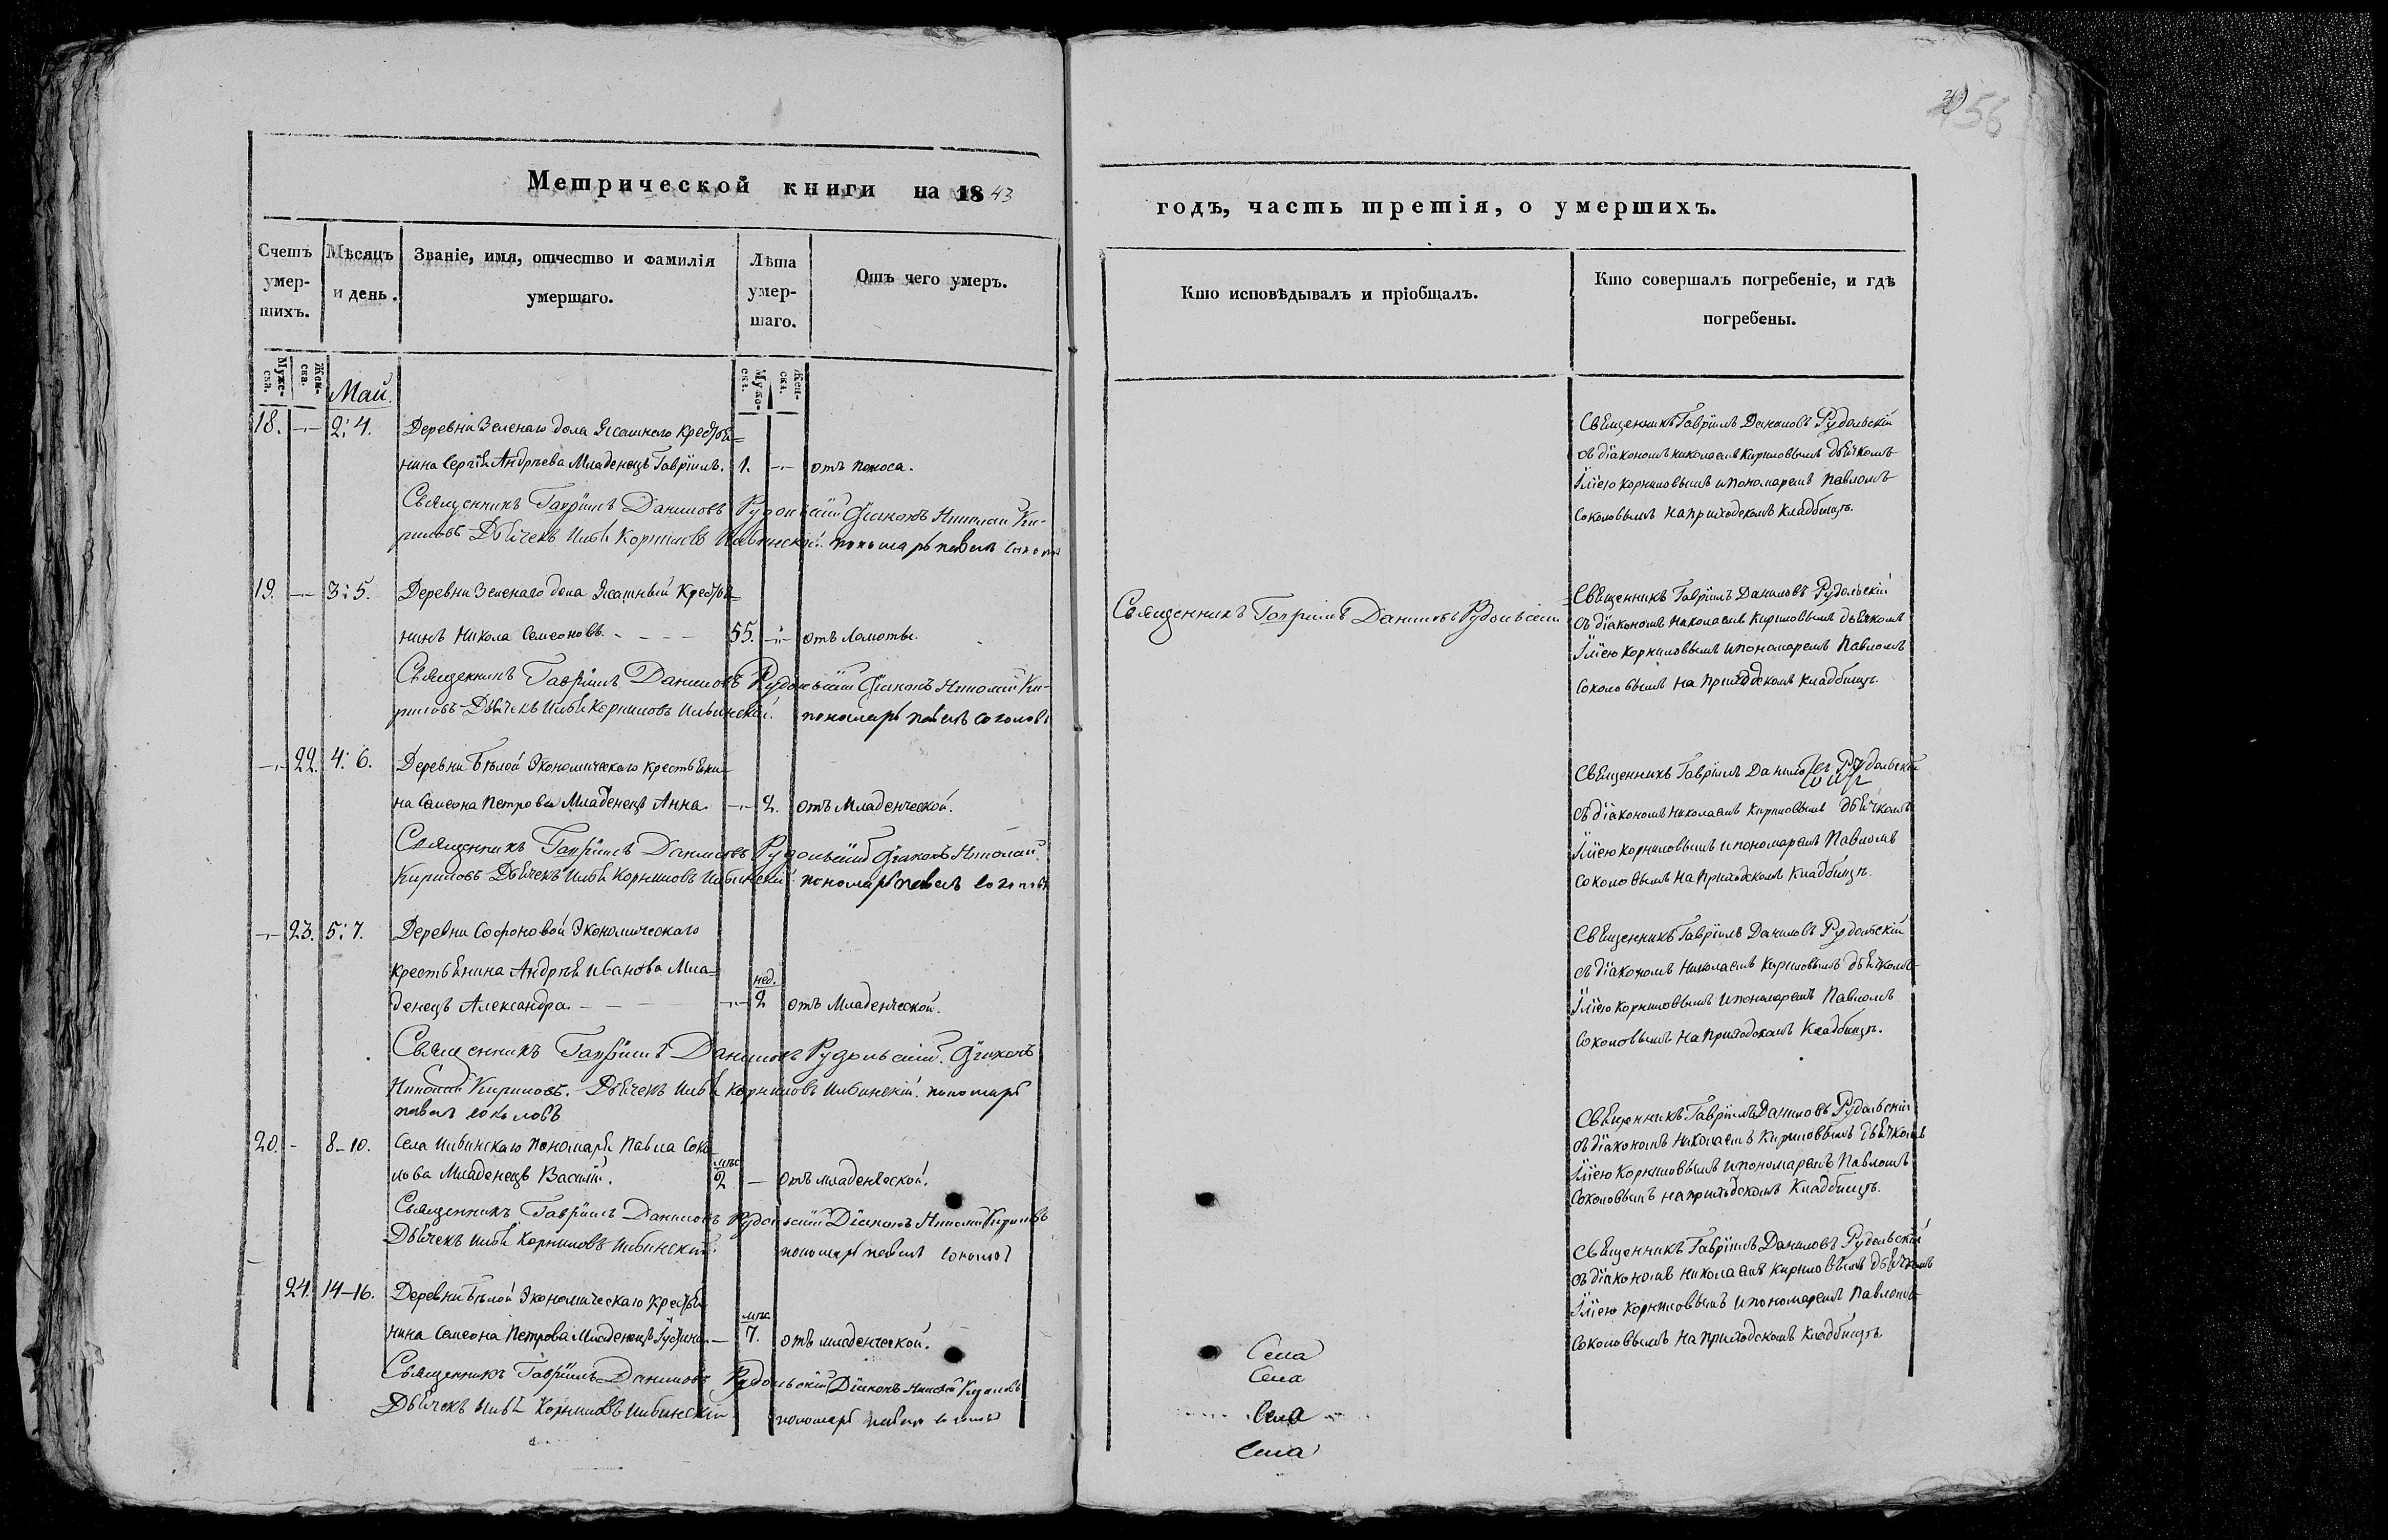 Метрической книги на 1843
Счетъ умер-шихъ.
Мѣсяцъ и день.
Званіе, имя, отчество и фамилія умершаго.
Лѣта умер-шаго.
Отъ чего умеръ.
Муже-ска.
Жен-ска.
Май.
Муже-ска.
Жен-ска.
18. -„- 2: 4. Деревни Зеленаго дола Ясашнаго крестья=
нина Сергія Андрѣева Младенецъ Гавріилъ. 1. -„- отъ поноса.
Священникъ Гавріилъ Даниловъ Рудольскій Діаконъ Николай Ки-
риловъ Дьячекъ Илья Корниловъ Ильинской. пономарь павелъ соколовъ
19. -„- 3: 5. Деревни Зеленаго дола Ясашный Крестья=
нинъ Никола Семеоновъ. - - - - 55. -„- отъ Ломоты.
Священникъ Гавріилъ Даниловъ Рудольскій Діаконъ Николай Ки-
риловъ Дьячекъ Илья Корниловъ Ильинской. пономарь павелъ соколовъ
-„- 22. 4: 6. Деревни Бѣлой Экономическаго крестьяни-
на Семеона Петрова Младенецъ Анна. -„- 2. отъ Младенческой.
Священникъ Гавріилъ Даниловъ Рудольскій Діаконъ Николай
Кириловъ Дьячекъ Илья Корниловъ Ильинскій пономарь павелъ соколовъ
-„- 23. 5: 7. Деревни Софоновой Экономическаго
крестьянина Андрѣя Иванова Мла=
нед.
денецъ Александра. - - - -„- 2 отъ Младенческой.
Священникъ Гавріилъ Даниловъ Рудольскій. Діаконъ
Николай Кириловъ. Дьячекъ Илья Корниловъ Ильинскій. пономарь
павелъ соколовъ
20. - 8-10. Села Ильинскаго Пономаря Павла Соко-
мѣс
лова Младенецъ Василій. 2 - отъ младенческой.
Священникъ Гавріилъ Даниловъ Рудольскій Діаконъ Николай Кириловъ
Дьячекъ Илья Корниловъ Ильинскій. пономарь павелъ соколовъ
24. 14-16. Деревни Бѣлой Экономическаго Крестья
мѣс.
нина Семеона Петрова Младенецъ - 7. отъ младенческой.
Священникъ Гавріилъ Даниловъ Рудольскій Діаконъ Николай Кириловъ
Дьячекъ Илья Корниловъ Ильинскій пономарь павелъ соколовъ
56
годъ, часть третія, о умершихъ.
Кто исповѣдывалъ и пріобщалъ.
Кто совершалъ погребеніе, и гдѣ погребены.
Священникъ Гавріилъ Даниловъ Рудольскій
съ діакономъ Николаемъ Кириловымъ дьячкомъ
Іліею Корниловымъ и пономаремъ Павломъ
Соколовымъ на приходскомъ Кладбищѣ.
Священникъ Гавріилъ Даниловъ Рудольскій
Священникъ Гавріилъ Даниловъ Рудольскій
съ діакономъ Николаемъ Кириловымъ дьячкомъ
Іліею Корниловымъ и пономаремъ Павломъ
Соколовымъ на Приходскомъ Кладбищѣ.
Священникъ Гавріилъ Даниловъ Рудольскій
съ діакономъ Николаемъ Кириловымъ дьячкомъ
Іліею Корниловымъ и пономаремъ Павломъ
Соколовымъ на Приходскомъ Кладбищѣ.
Священникъ Гавріилъ Даниловъ Рудольскій
съ діакономъ Николаемъ Кириловымъ дьячкомъ
Іліею Корниловымъ и пономаремъ Павломъ
Соколовымъ на Приходскомъ Кладбищѣ.
Священникъ Гавріилъ Даниловъ Рудольскій
съ діакономъ Николаемъ Кириловымъ дьячкомъ
Іліею Корниловымъ и пономаремъ Павломъ
Соколовымъ на приходскомъ Кладбищѣ.
Священникъ Гавріилъ Даниловъ Рудольскій
съ діакономъ Николаемъ Кириловымъ дьячкомъ
Іліею Корниловымъ и пономаремъ Павломъ
Соколовымъ на Приходскомъ Кладбищѣ
Села
Села
Села
Села